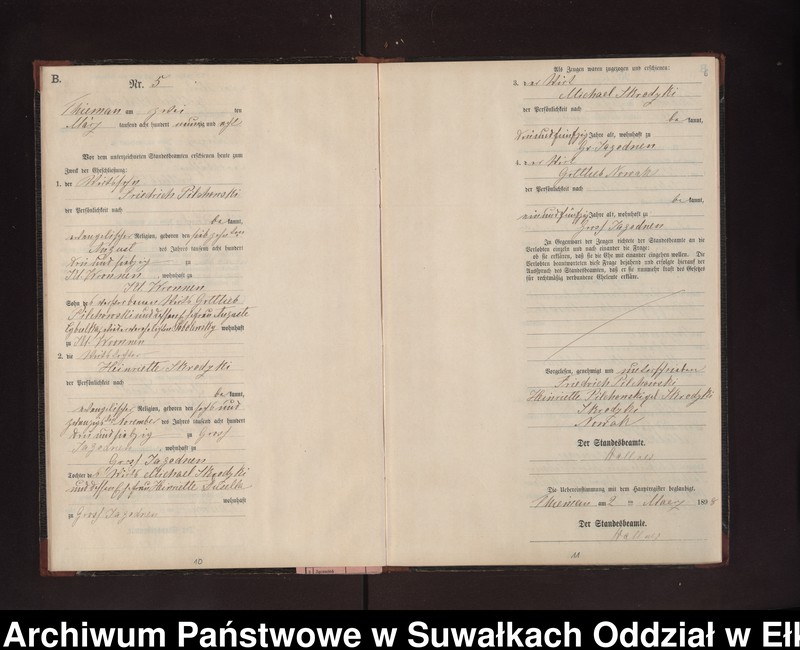 B.
Nr. 5
am zwei ten
März tausend acht hundert neunzig und acht
Vor dem unterzeichneten Standesbeamten erschienen heute zum
Zweck der Eheschließung:
1. der Wirthssohn
Friedrich Pilchowski
der Persönlichkeit nach
be kannt,
evangelischer Religion, geboren den
August des Jahres tausend acht hundert
drei und siebzig zu
Kl Wronnen, wohnhaft zu
Kl Wronnen
Sohn des verstorbenen Wirth Gottlieb
Pilchowski und dessen Ehefrau Auguste
wohnhaft
zu Kl Wronnen
2. die Wirthstochter
Heinriette Skrodzki
der Persönlichkeit nach
be kannt,
evangelischer Religion, geboren den sechs und
zwanzigsten November des Jahres tausend acht hundert
drei und siebzig zu Gross
Jagodnen, wohnhaft zu
Gross Jagodnen
Tochter des Wirths Michael Skrodzki
und dessen Ehefrau Heinriette
wohnhaft
zu Gross Jagodnen
10
Als Zeugen waren zugezogen und erschienen:
3. der Wirt
Michael Skrodzki
der Persönlichkeit nach
be kannt,
Jahre alt, wohnhaft zu
Gr Jagodnen
4. der Wirt
Gottlieb Nowak
der Persönlichkeit nach
be kannt,
Jahre alt, wohnhaft zu
Gross Jagodnen
In Gegenwart der Zeugen richtete der Standesbeamte an die
Verlobten einzeln und nach einander die Frage:
ob sie erklären, daß sie die Ehe mit einander eingehen wollen. Die
Verlobten beantworteten diese Frage bejahend und erfolgte hierauf der
Ausspruch des Standesbeamten, daß er sie nunmehr kraft des Gesetzes
für rechtmäßig verbundene Eheleute erkläre.
Vorgelesen, genehmigt und unterschrieben
Friedrich Pilchowski
Heinriette Pilchowski geb Skrodzki
Skrodzki
Nowak
Der Standesbeamte.
Die Uebereinstimmung mit dem Hauptregister beglaubigt.
am 2 ten März 1898
Der Standesbeamte.
11
Archiwum Państwowe w Suwałkach Oddział w Ełk